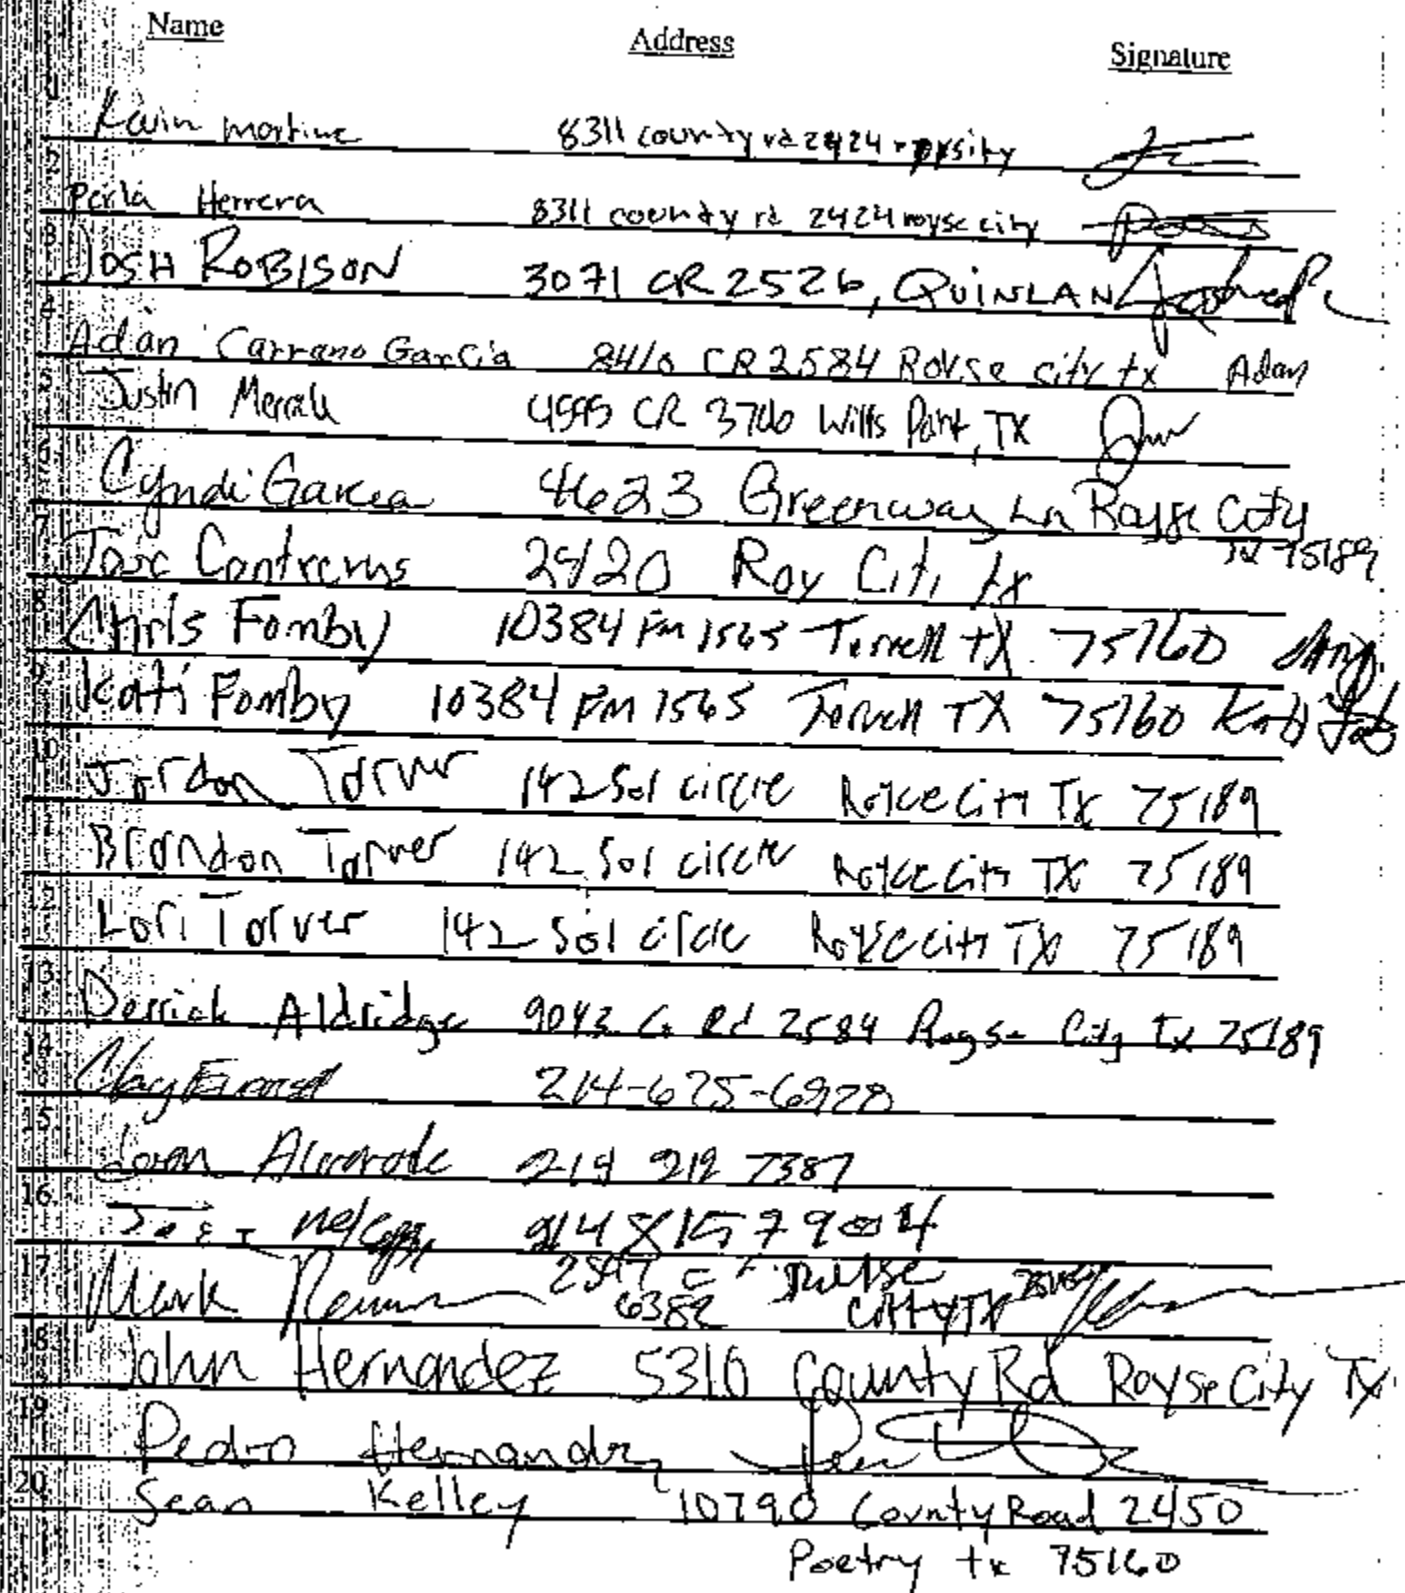 Name Address Signature
1
2 8311 county rd 2424
Perla Herrera 8311 county rd 2424 royse city
3 JOSH ROBISON 3071 CR 2526, QUINLAN
4
Adan Carrano Garcia 8410 CR 2584 Royse city tx Adan
5 Justin CR 3706 Wills Point, TX
6 Cyndi Garcia 4623 Greenway Ln Royse City
TX 75189
7 Contreras 2420 Roy Citi tx
8 Chris Fomby 10384 Fm 1565 Terrell tX. 75160
9 Kati Fomby 10384 FM 1565 Terrell TX 75160 Kati
10 Jordon Torver 142 Sol circle Royce City TX 75189
Brandon Torver 142 Sol circle Royce City TX 75189
12 Lori Torver 142 Sol circle Royse City TX 75189
13 Derrick Aldridge 9043 Co Rd 2584 Royse City Tx 75189
14 Clay 214-675-6920
15. 214 212 7387
16. 214 815 7904
17 Mark 6382 City TX
18 John Hernandez 5310 County Rd Royse City TX.
19 Pedro Hernandez
20 Sean Kelley 10790 County Road 2450
Poetry tx 75160